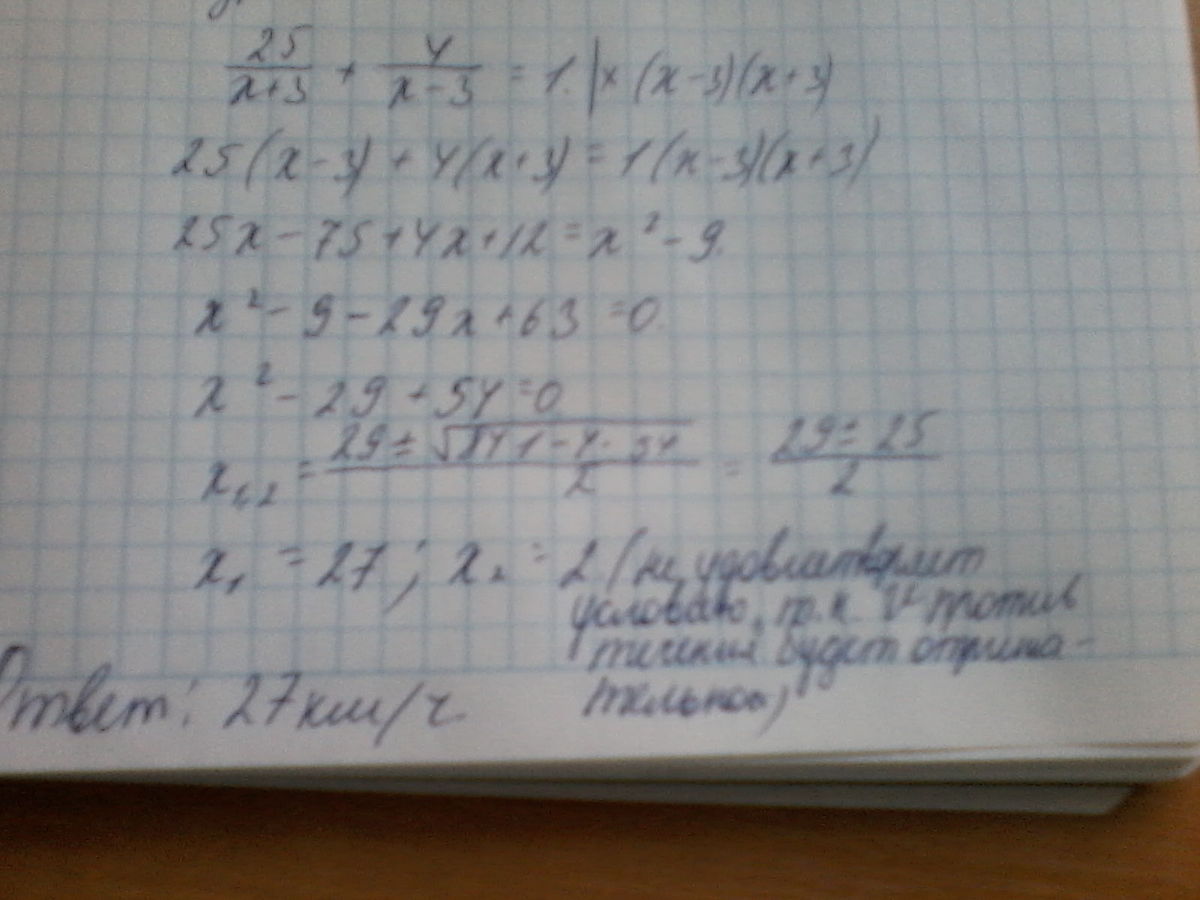 25/(x+3) + 4/(x-3) = 1. | × (x-3)(x+3)
25(x-3) + 4(x+3) = 1(x-3)(x+3)
25x - 75 + 4x + 12 = x² - 9.
x² - 9 - 29x + 63 = 0.
x² - 29 + 54 = 0
x₁,₂ = (29 ± √(841 - 4 · 54))/2 = (29 ± 25)/2
x₁ = 27; x₂ = 2 (не удовлетворяет
условию, т.к. V против
течения будет отрица-
тельной)
Ответ: 27 км/ч.